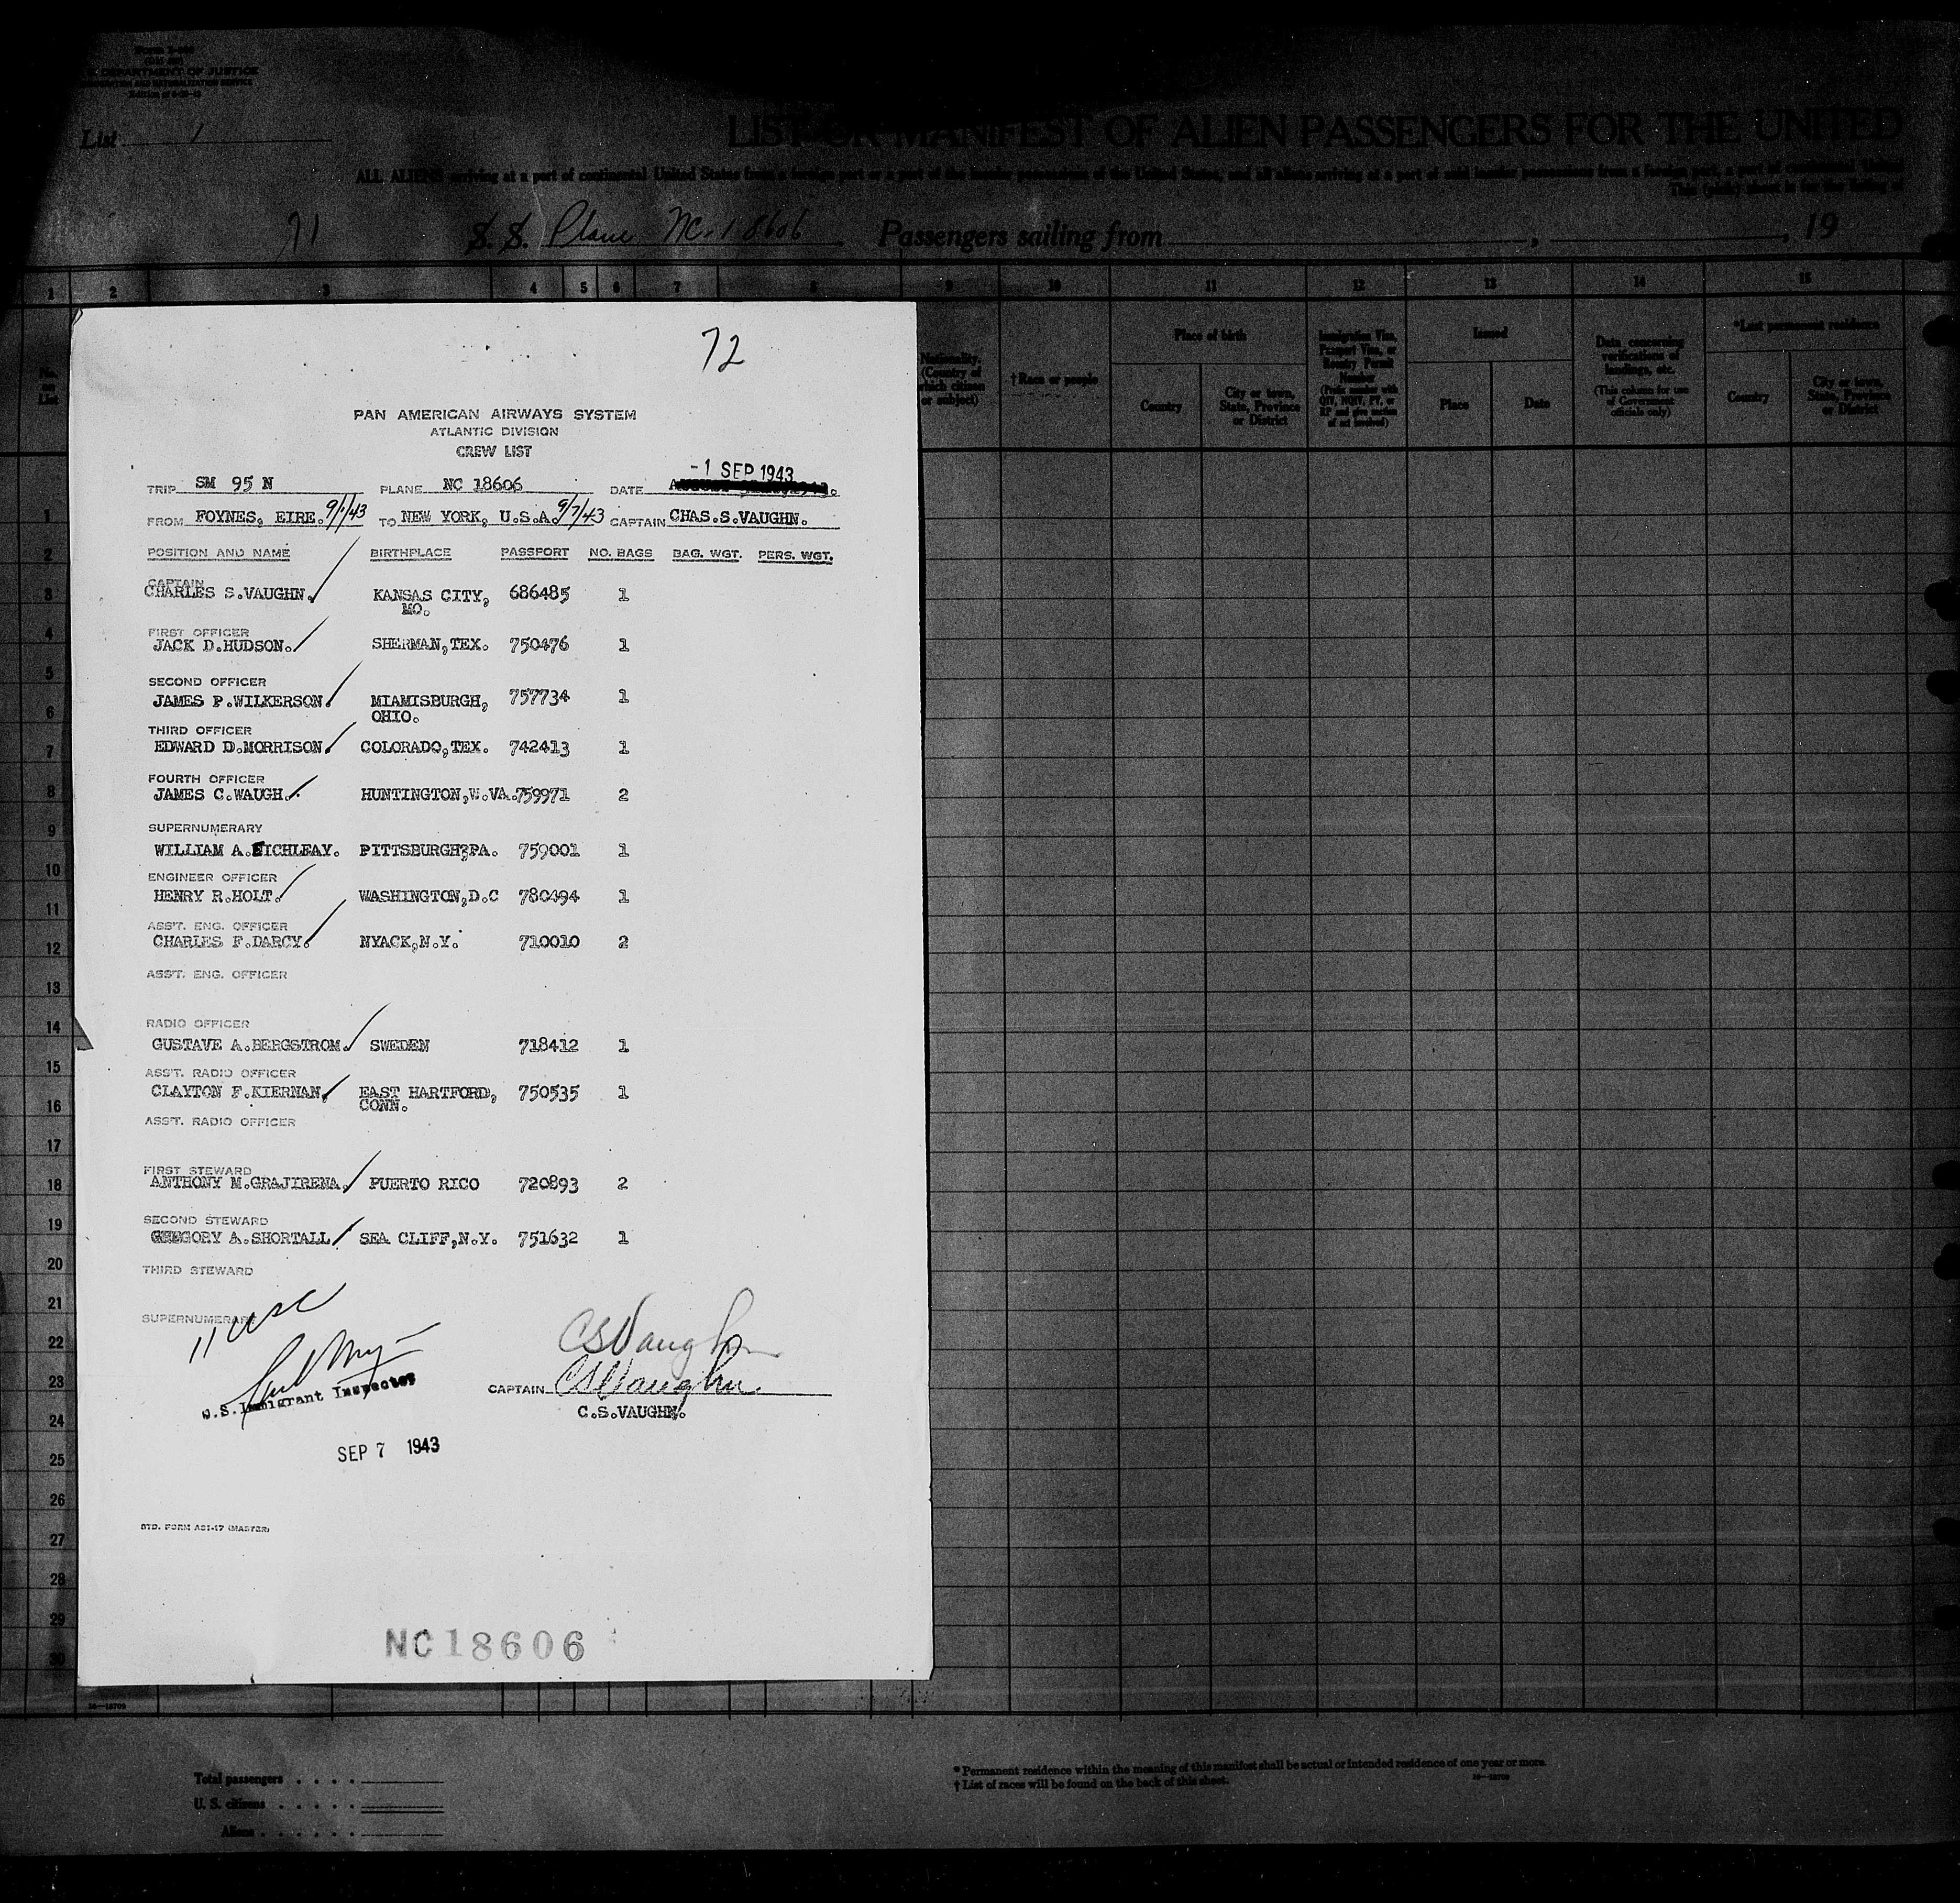 DEPARTMENT OF JUSTICE
List 1
LIST OR MANIFEST OF ALIEN PASSENGERS FOR THE UNITED
ALL ALIENS arriving at a port of continental United States from a foreign port or a port of the insular possessions of the United States, and all aliens arriving at a port of said insular possessions from a foreign port, a port of continental United
This (white) sheet is for the listing of
71 S. S. Plane NC. 18606 Passengers sailing from , , 19
1 2 3 4 5 6 7 8 9 10 11 12 13 14 15
No. on List
Nationality. (Country of which citizen or subject)
† Race or people
Place of birth
Country
City or town, State, Province or District
Immigration Visa, Passport Visa, or Reentry Permit Number
Issued
Place
Date
Data concerning verifications of landings, etc.
(This column for use of Government officials only)
*Last permanent residence
Country
City or town, State, Province or District
72
PAN AMERICAN AIRWAYS SYSTEM
ATLANTIC DIVISION
CREW LIST
-1 SEP 1943
TRIP SM 95 N PLANE NC 18606 DATE
FROM FOYNES, EIRE. 9/1/43 TO NEW YORK, U.S.A. 9/7/43 CAPTAIN CHAS.S.VAUGHN.
POSITION AND NAME BIRTHPLACE PASSPORT NO. BAGS BAG. WGT. PERS. WGT.
CAPTAIN
CHARLES S.VAUGHN. KANSAS CITY, 686485 1
MO.
FIRST OFFICER
JACK D.HUDSON. SHERMAN,TEX. 750476 1
SECOND OFFICER
JAMES P.WILKERSON. MIAMISBURGH, 757734 1
OHIO.
THIRD OFFICER
EDWARD D.MORRISON. COLORADO,TEX. 742413 1
FOURTH OFFICER
JAMES C.WAUGH. HUNTINGTON,W.VA. 759971 2
SUPERNUMERARY
WILLIAM A.EICHLEAY. PITTSBURGH?PA. 759001 1
ENGINEER OFFICER
HENRY R.HOLT. WASHINGTON,D.C 780494 1
ASS'T. ENG. OFFICER
CHARLES F.DARCY. NYACK,N.Y. 710010 2
ASS'T. ENG. OFFICER
RADIO OFFICER
GUSTAVE A.BERGSTROM. SWEDEN 718412 1
ASS'T. RADIO OFFICER
CLAYTON F.KIERNAN. EAST HARTFORD, 750535 1
CONN.
ASS'T. RADIO OFFICER
FIRST STEWARD
ANTHONY M.GRAJIRENA. PUERTO RICO 720893 2
SECOND STEWARD
GREGORY A.SHORTALL SEA CLIFF,N.Y. 751632 1
THIRD STEWARD
SUPERNUMERARY
11 USC
CSVaughn
U.S.Immigrant Inspector
CAPTAIN CSVaughn.
C.S.VAUGHN.
SEP 7 1943
STD. FORM AS1-17 (MASTER)
NC18606
1
2
3
4
5
6
7
8
9
10
11
12
13
14
15
16
17
18
19
20
21
22
23
24
25
26
27
28
29
30
16—18709
Total passengers
U. S. citizens
Aliens
* Permanent residence within the meaning of this manifest shall be actual or intended residence of one year or more.
† List of races will be found on the back of this sheet.
16—18709